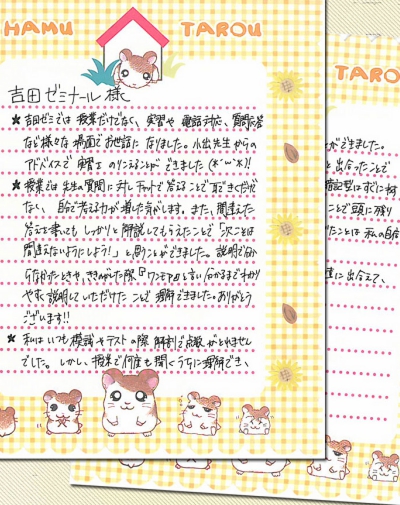 HAMU TAROU
吉田ゼミナール 様
★ 吉田ゼミでは 授業だけでなく、実習や 電話対応、質問応答
など様々な 場面でお世話に なりました。小出先生 からの
アドバイスで 実習
ことが できました(*'w'*)!
★ 授業では 先生の 質問に対し チャットで 答えること で
なく、自分で考える力が 増した気がします。また、間違えた
答えを書いても しっかりと 解説してもらえたことで「次こそは
間違えないようにしよう!」と思うことができました。説明で分か
らなかったときや、ききのがした際『ワンモア!!』と言い
やすく 説明していただけた ことで 理解できました。ありがとう
ございます!!
★ 私は いつも 模試やテストの 際 解剖で 点数 がとれません
でした。しかし、授業で何度も 聞くうちに理解でき、
TAROU
ができました。
と出会ったことで
ことで 頭に残り
たことは 私の自信
に出会えて、